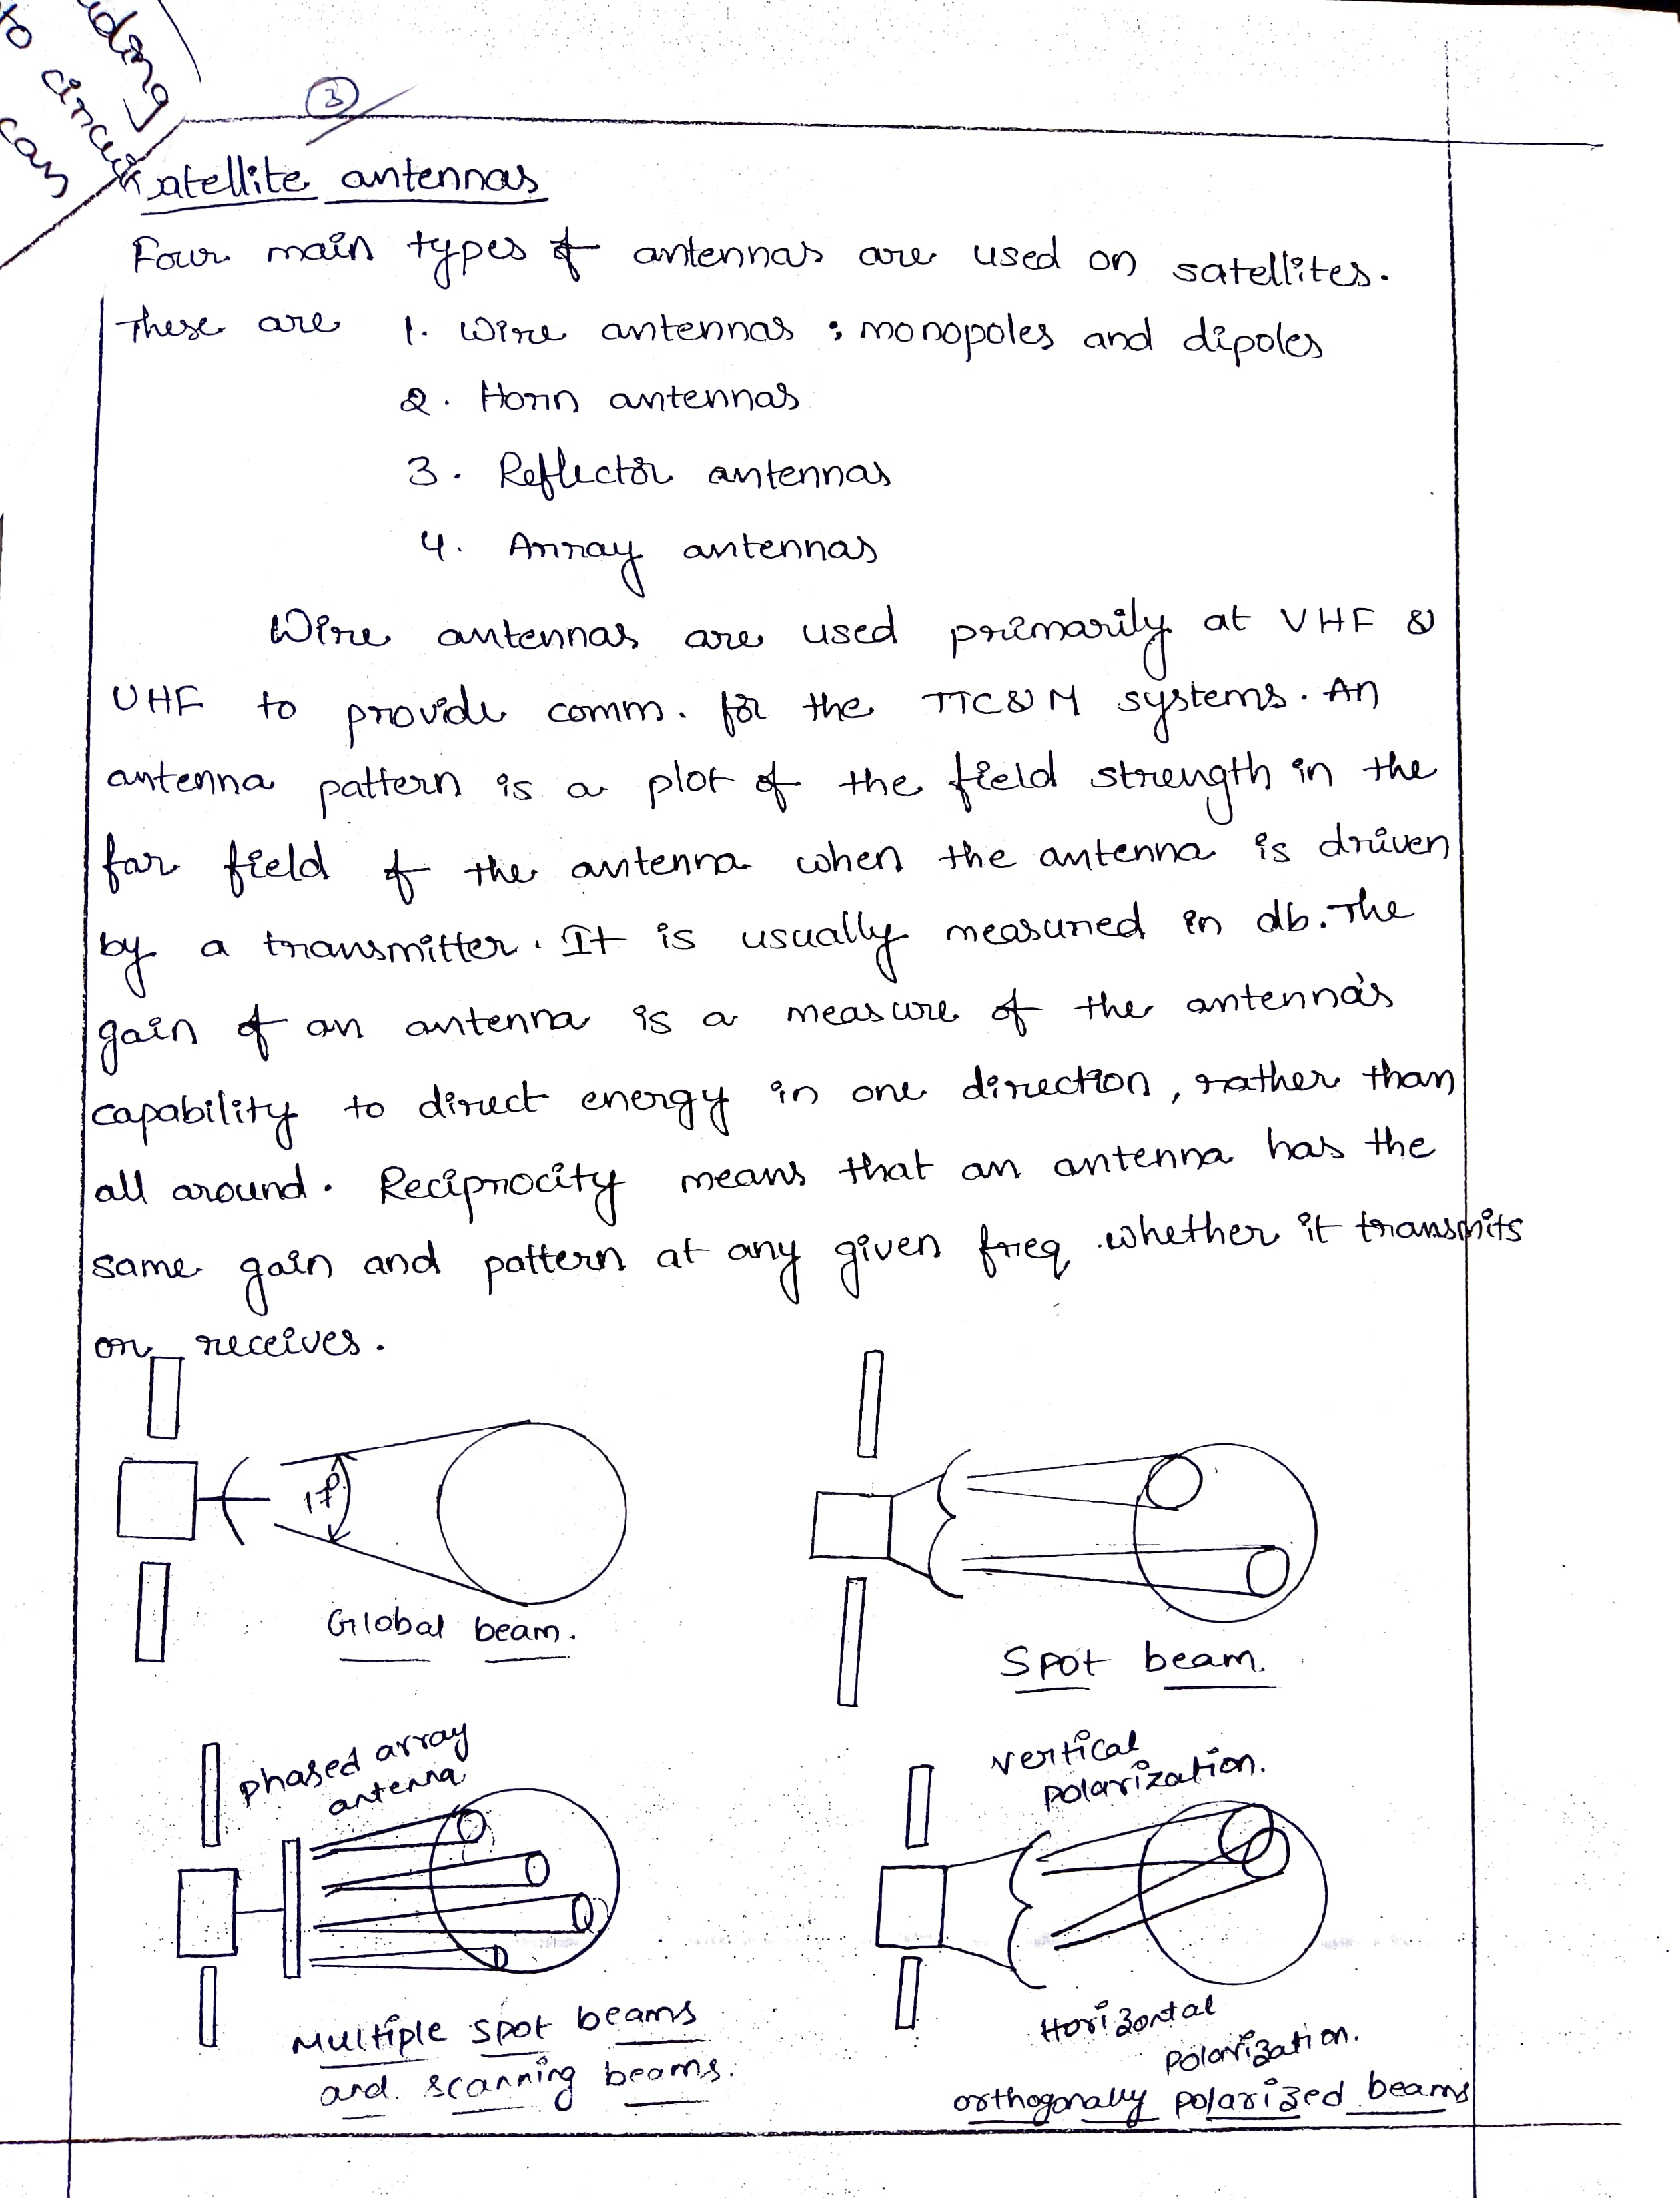 to circuit
can
③
Satellite antennas
Four main types of antennas are used on satellites.
These are 1. Wire antennas ; monopoles and dipoles
2. Horn antennas
3. Reflector antennas
4. Array antennas
Wire antennas are used primarily at VHF &
UHF to provide comm. for the TTC&M systems. An
antenna pattern is a plot of the field strength in the
far field of the antenna when the antenna is driven
by a transmitter. It is usually measured in db. The
gain of an antenna is a measure of the antenna's
capability to direct energy in one direction, rather than
all around. Reciprocity means that an antenna has the
same gain and pattern at any given freq whether it transmits
or receives.
Global beam.
Spot beam.
phased array
antenna
vertical
polarization.
Multiple spot beams
and scanning beams.
Horizontal
Polarization.
orthogonally polarized beams